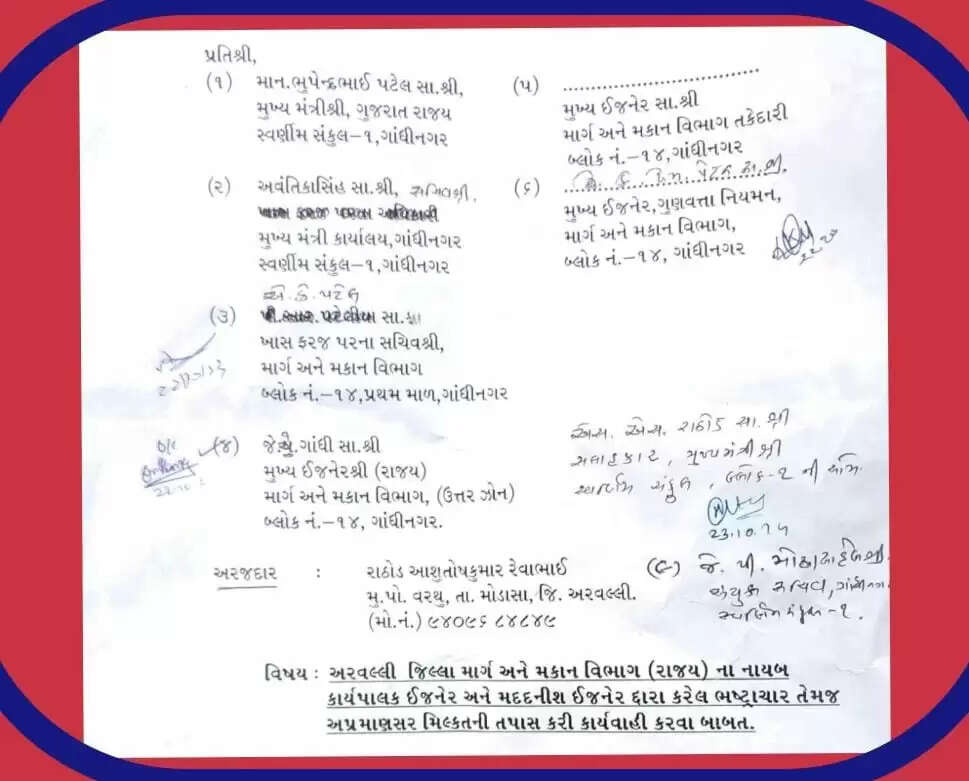 પ્રતિશ્રી,
(૧) માન.ભુપેન્દ્રભાઈ પટેલ સા.શ્રી,
મુખ્ય મંત્રીશ્રી, ગુજરાત રાજય
સ્વર્ણીમ સંકુલ–૧,ગાંધીનગર
(૨) અવંતિકાસિંહ સા.શ્રી, સચિવશ્રી,
ખાસ ફરજ પરના અધિકારી
મુખ્ય મંત્રી કાર્યાલય,ગાંધીનગર
સ્વર્ણીમ સંકુલ–૧,ગાંધીનગર
એ.કે.પટેલ
(૩) સા.શ્રી
ખાસ ફરજ પરના સચિવશ્રી,
માર્ગ અને મકાન વિભાગ
બ્લોક નં.–૧૪,પ્રથમ માળ,ગાંધીનગર
(૪) ગાંધી સા.શ્રી
મુખ્ય ઈજનેરશ્રી (રાજય)
માર્ગ અને મકાન વિભાગ, (ઉત્તર ઝોન)
બ્લોક નં.–૧૪, ગાંધીનગર.
(૫) ..............................
મુખ્ય ઈજનેર સા.શ્રી
માર્ગ અને મકાન વિભાગ તકેદારી
બ્લોક નં.–૧૪,ગાંધીનગર
(૬) પટેલ સા.શ્રી.
મુખ્ય ઈજનેર,ગુણવત્તા નિયમન,
માર્ગ અને મકાન વિભાગ,
બ્લોક નં.–૧૪, ગાંધીનગર
એસ. એચ. રાઠોડ સા.શ્રી
સલાહકાર, મુખ્યમંત્રીશ્રી
સ્વર્ણિમ સંકુલ,
23.10.24
જે. પી.
સંયુક્ત સચિવ, ગાંધીનગર
સ્વર્ણિમ સંકુલ-૧.
અરજદાર : રાઠોડ આશુતોષકુમાર રેવાભાઈ
મુ.પો. વરથુ, તા. મોડાસા, જિ. અરવલ્લી.
(મો.નં.) ૯૪૦૯૬ ૮૪૮૪૯
વિષય : અરવલ્લી જિલ્લા માર્ગ અને મકાન વિભાગ (રાજય) ના નાયબ
કાર્યપાલક ઈજનેર અને મદદનીશ ઈજનેર દ્વારા કરેલ ભષ્ટ્રાચાર તેમજ
અપ્રમાણસર મિલ્કતની તપાસ કરી કાર્યવાહી કરવા બાબત.